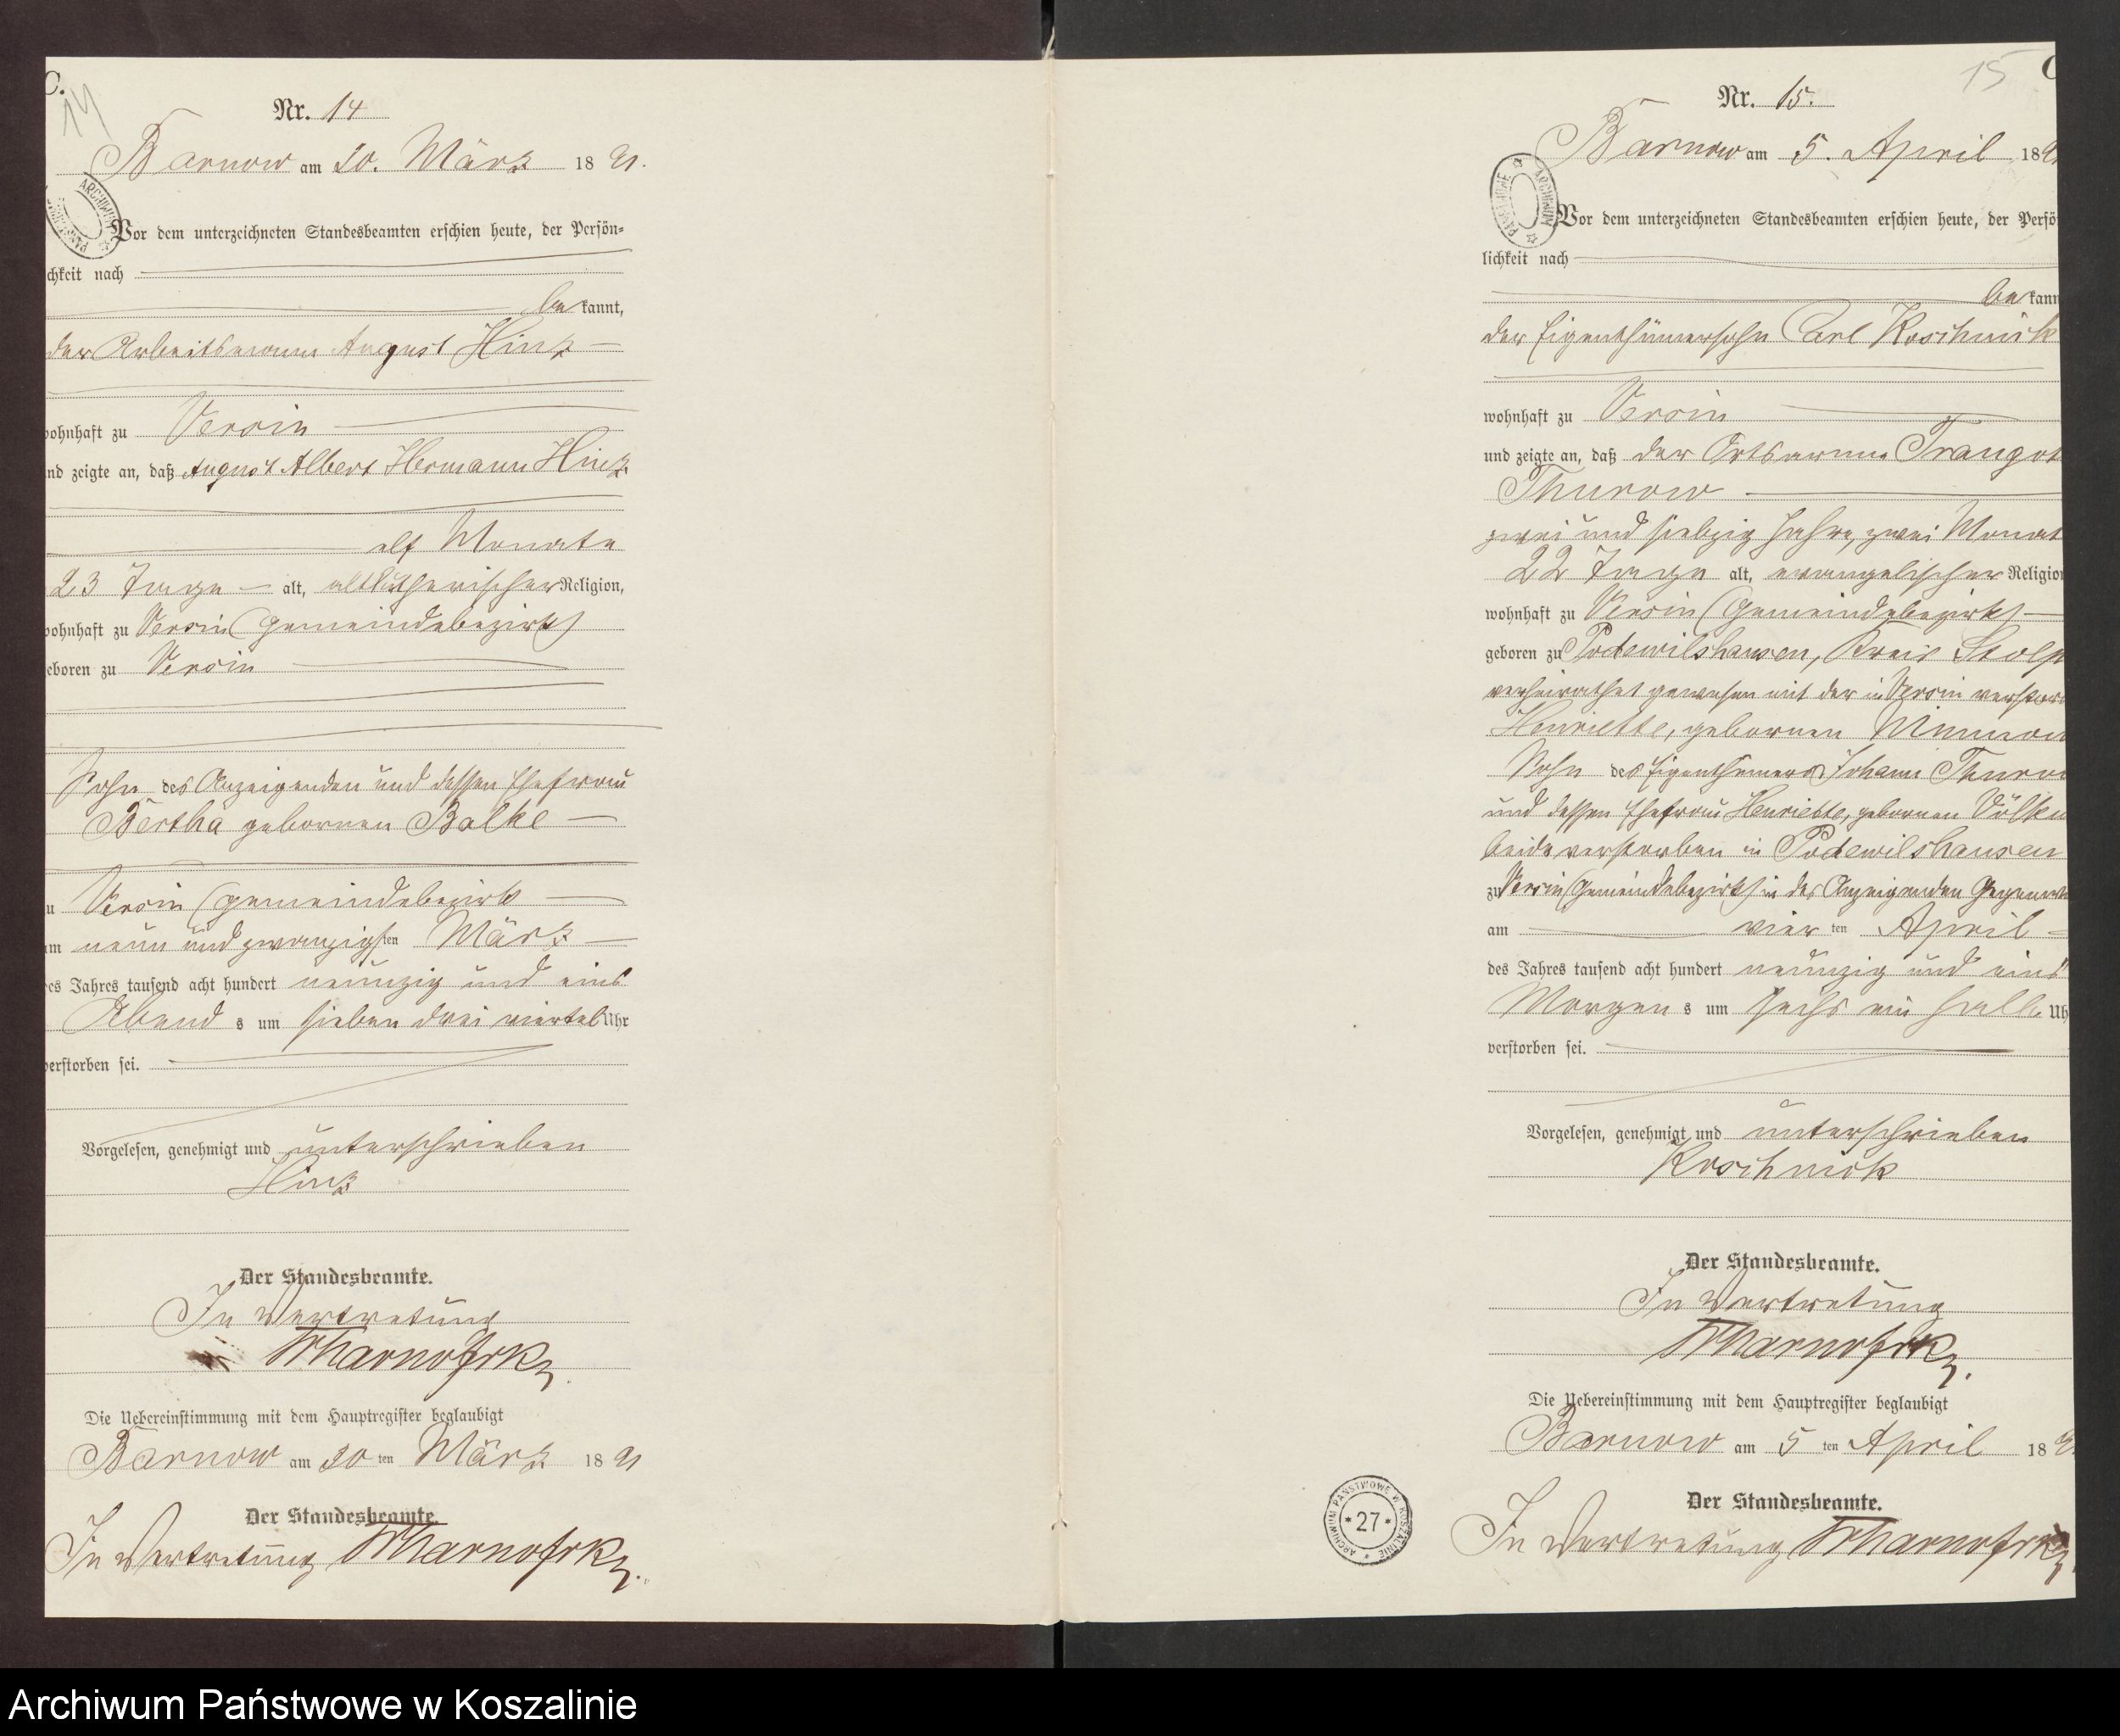 C.
14
Nr. 14
Barnow am 30. März 1891.
Vor dem unterzeichneten Standesbeamten erschien heute, der Persön=
chkeit nach
be kannt,
der Arbeitsmann August Hinz
ohnhaft zu Versin
nd zeigte an, daß August Albert Hermann Hinz
elf Monate
23 Tage alt, altlutherischer Religion,
ohnhaft zu Versin (Gemeindebezirk)
eboren zu Versin
Sohn des Anzeigenden und dessen Ehefrau
Bertha gebornen Balke
u Versin (Gemeindebezirk
m neun und zwanzigsten März
es Jahres tausend acht hundert neunzig und eins
Abend s um sieben drei viertel Uhr
verstorben sei.
Vorgelesen, genehmigt und unterschrieben
Hinz
Der Standesbeamte.
In Vertretung
Die Uebereinstimmung mit dem Hauptregister beglaubigt
Barnow am 30 ten März 1891
Der Standesbeamte.
In Vertretung
15
C
Nr. 15.
Barnow am 5. April 189
Vor dem unterzeichneten Standesbeamten erschien heute, der Persö
lichkeit nach
be kann
der Eigenthümersohn Carl Koschnick
wohnhaft zu Versin
und zeigte an, daß der Ortsarme Traugot
Thurow
zwei und siebzig Jahre, zwei Monat
22 Tage alt, evangelischer Religion
wohnhaft zu Versin (Gemeindebezirk)
geboren zu Podewilshausen, Kreis Stolp
verheirathet gewesen mit der in Versin verstor
Henriette, gebornen
Sohn des Eigenthümers Johann Thurow
und dessen Ehefrau Henriette, gebornen Völkn
beide verstorben in Podewilshausen
zu Versin (Gemeindebezirk) in des Anzeigenden Gegenwa
am vier ten April
des Jahres tausend acht hundert neunzig und eins
Morgen s um sechs ein halb Uh
verstorben sei.
Vorgelesen, genehmigt und unterschrieben
Koschnick
Der Standesbeamte.
In Vertretung
Die Uebereinstimmung mit dem Hauptregister beglaubigt
Barnow am 5 ten April 189
Der Standesbeamte.
In Vertretung
ARCHIWUM PAŃSTWOWE W KOSZALINIE
* 27 *
Archiwum Państwowe w Koszalinie